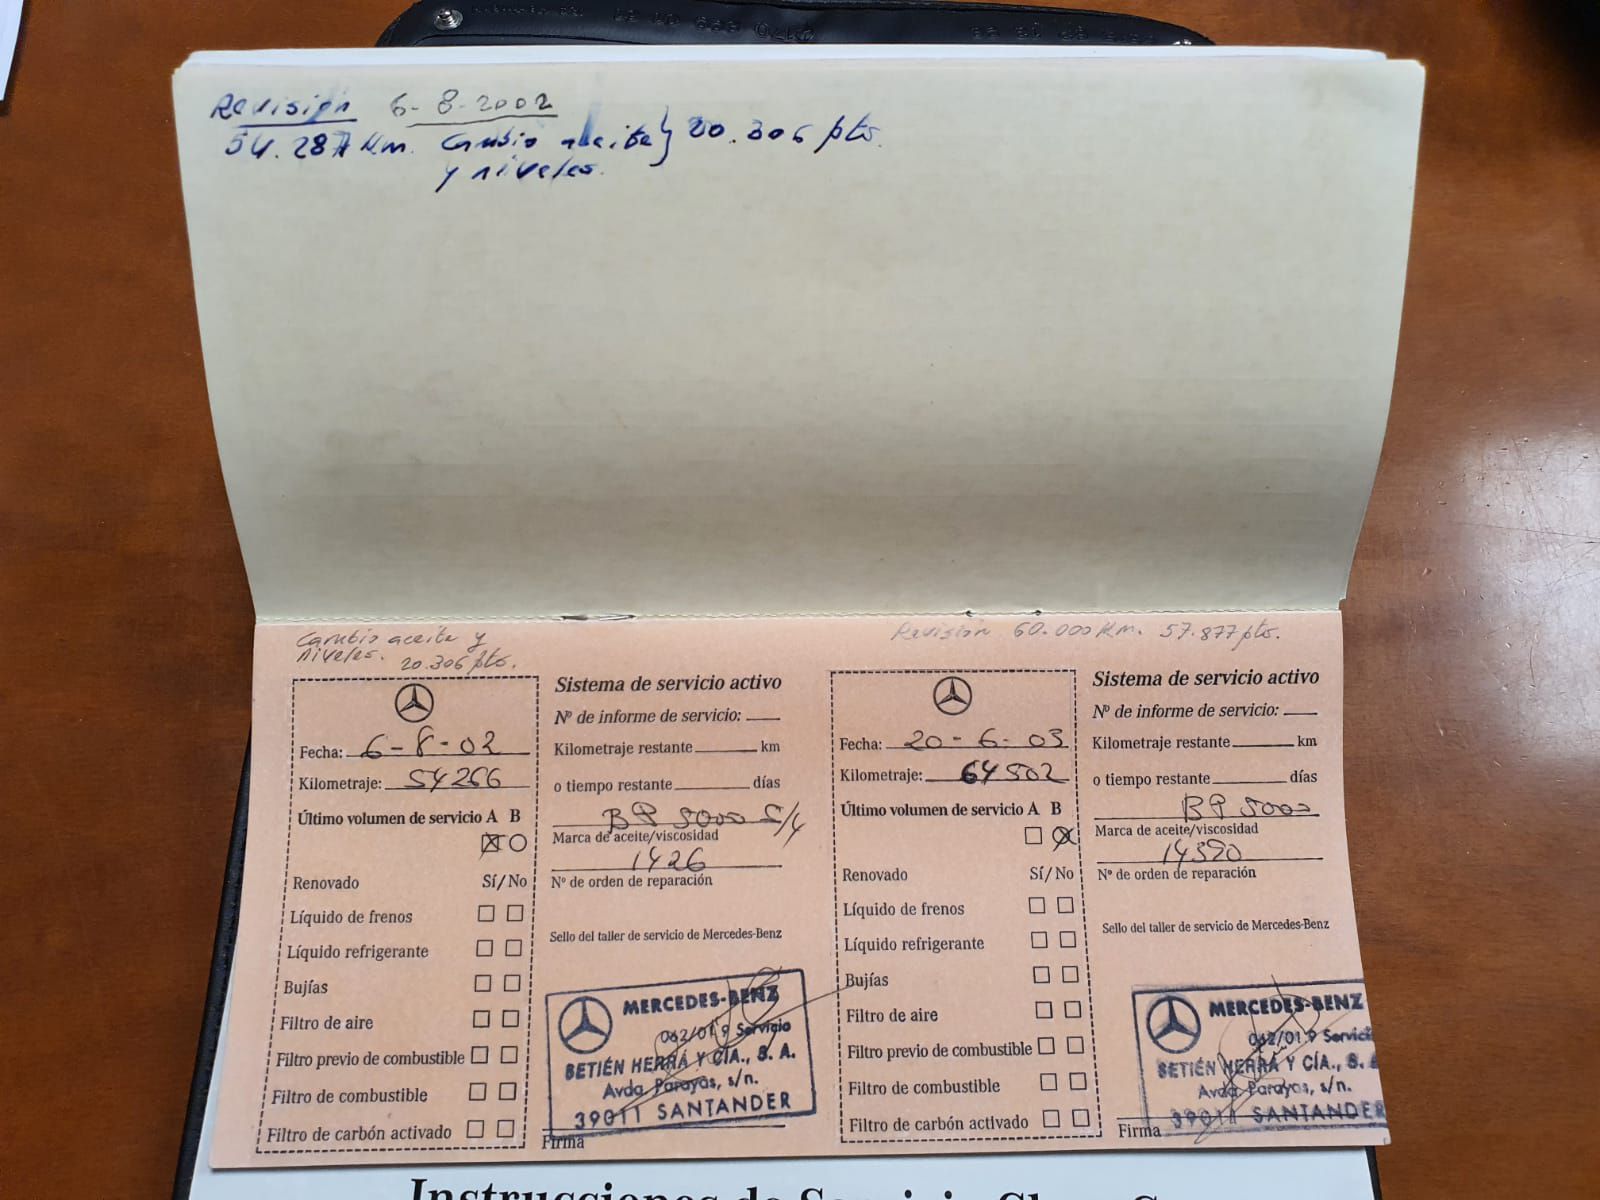 Revisión 6-8-2002
54.287 Km. Cambio aceite } 20.306 pts.
y niveles.
Cambio aceite y
niveles. 20.306 pts.
Fecha: 6-8-02
Kilometraje: 54266
Último volumen de servicio A B
Renovado Sí/No
Líquido de frenos
Líquido refrigerante
Bujías
Filtro de aire
Filtro previo de combustible
Filtro de combustible
Filtro de carbón activado
Sistema de servicio activo
Nº de informe de servicio:
Kilometraje restante km
o tiempo restante días
BP 5000 S/4
Marca de aceite/viscosidad
1426
Nº de orden de reparación
Sello del taller de servicio de Mercedes-Benz
MERCEDES-BENZ
062/019 Servicio
BETIÉN HERRÁ Y CÍA., S. A.
Avda. Parayas, s/n.
39011 SANTANDER
Firma
Revisión 60.000 Km. 57.877 pts.
Fecha: 20-6-03
Kilometraje: 64502
Último volumen de servicio A B
Renovado Sí/No
Líquido de frenos
Líquido refrigerante
Bujías
Filtro de aire
Filtro previo de combustible
Filtro de combustible
Filtro de carbón activado
Sistema de servicio activo
Nº de informe de servicio:
Kilometraje restante km
o tiempo restante días
BP 5000
Marca de aceite/viscosidad
14390
Nº de orden de reparación
Sello del taller de servicio de Mercedes-Benz
MERCEDES-BENZ
062/019 Servici
BETIÉN HERRÁ Y CÍA., S.
Avda. Parayas, s/n.
39011 SANTANDER
Firma
Instrucciones de Servicio